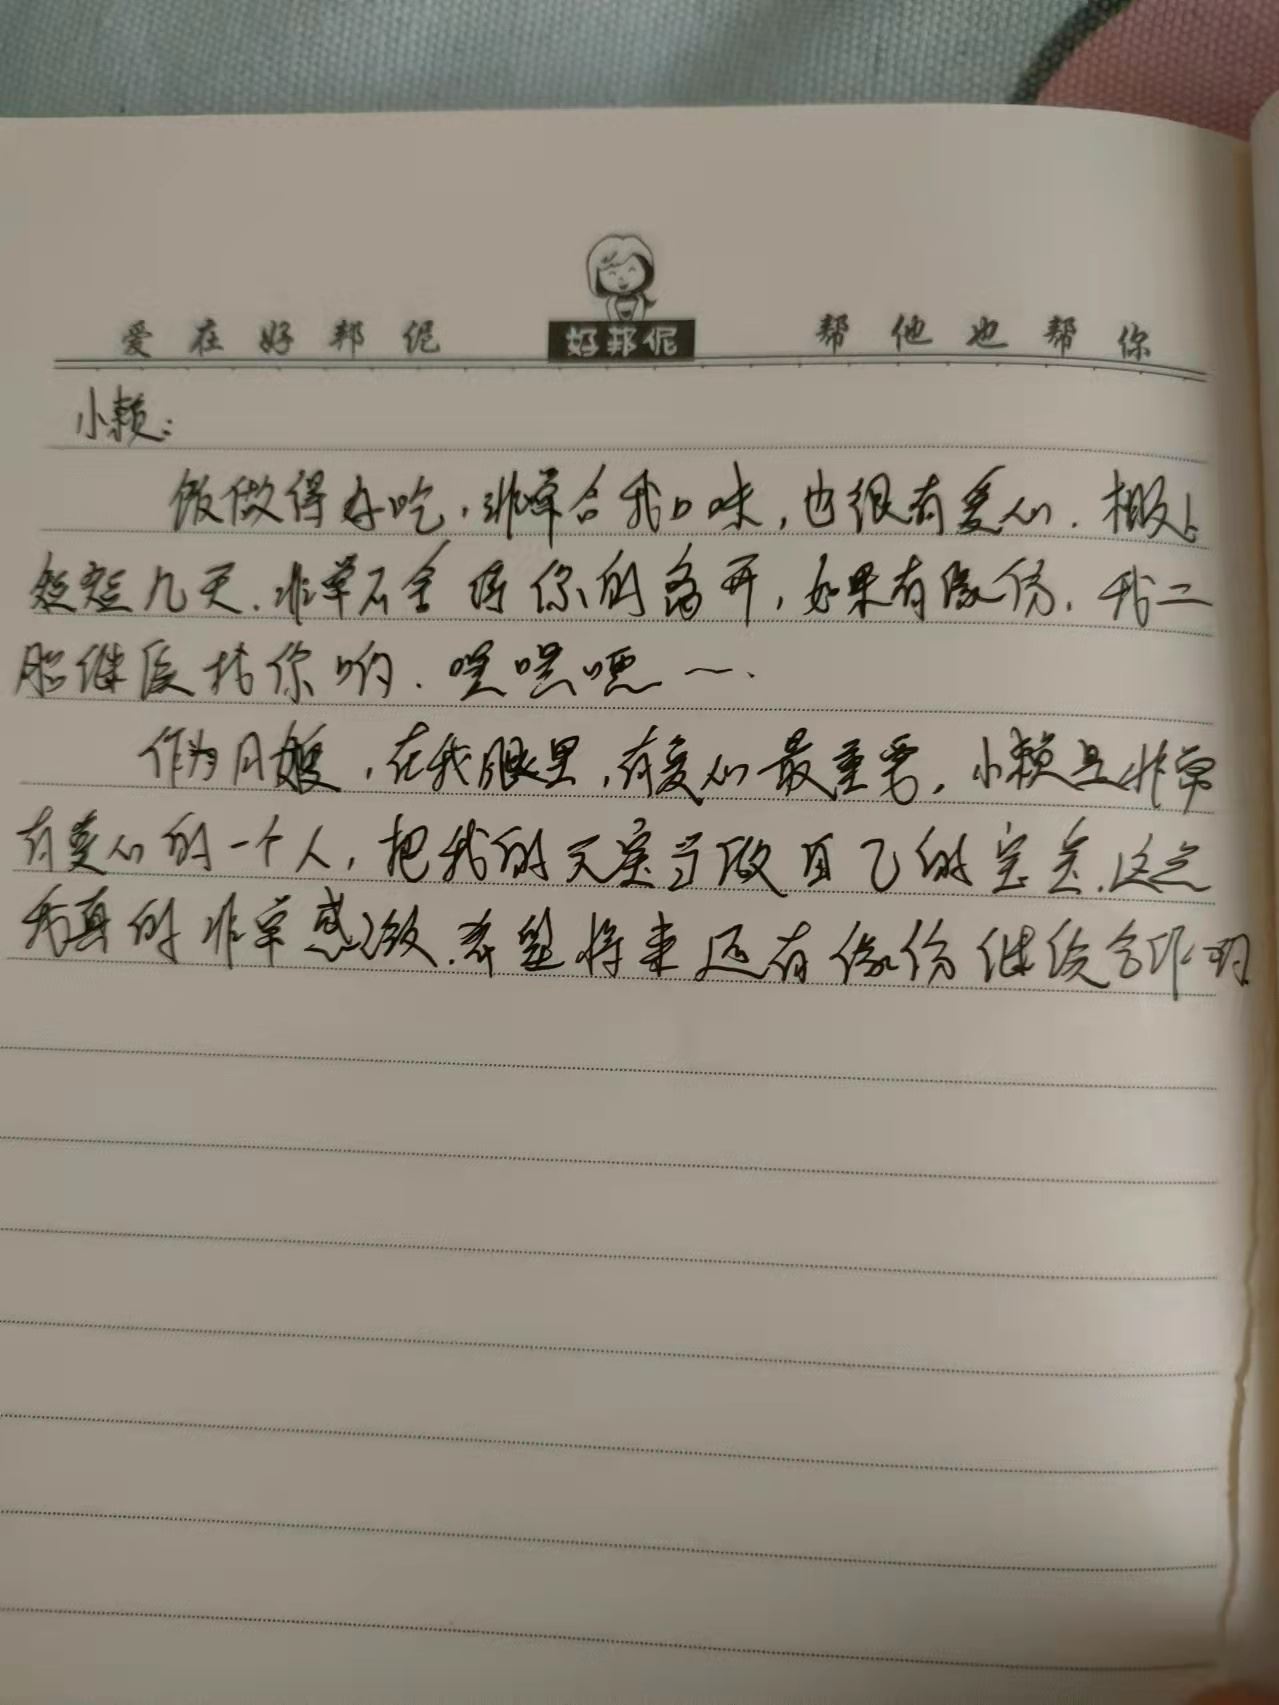 爱在好邦伲 好邦伲 帮他也帮你
小赖：
饭做得好吃，非常合我口味，也很有爱心．相处
短短几天．非常不舍得你的离开，如果有缘份．我二
胎继续找你哟．嘿嘿嘿～．
作为月嫂，在我眼里，有爱心最重要．小赖是非常
有爱心的一个人，把我的天宝当做自己的宝宝．这点
我真的非常感激．希望将来还有缘份继续合作哟